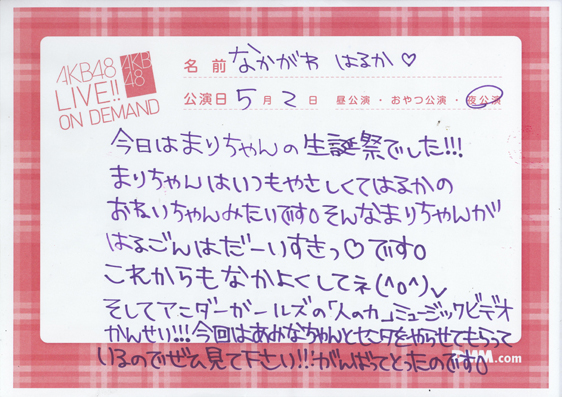 AKB48
LIVE!!
ON DEMAND
AKB
48
名前 なかがわ はるか♡
公演日 5月2日 昼公演・おやつ公演・夜公演
今日はまりちゃんの生誕祭でした!!!
まりちゃんはいつもやさしくてはるかの
おねいちゃんみたいです。そんなまりちゃんが
はるごんはだーいすきっ♡です。
これからもなかよくしてネ(^o^)
そしてアニダーガールズの「人の力」ミュージックビデオ
かんせい!!!今回はあみなちゃんとセンターをやらせてもらって
いるのでぜひ見て下さい!!!がんばってとったのです。
.com